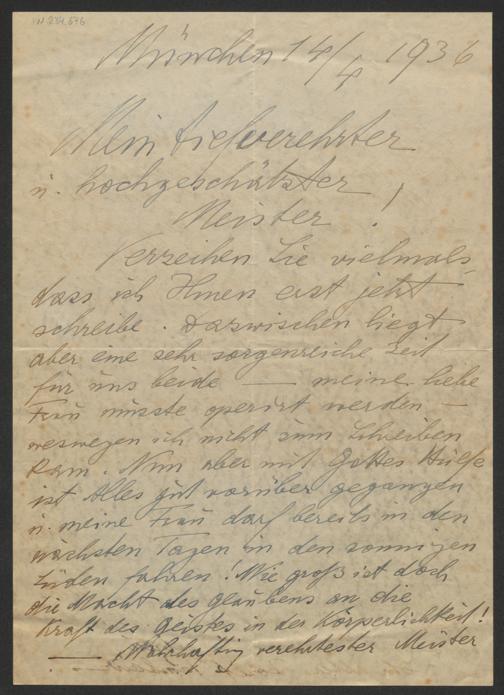 IN 214.676
München 14/4 1936
Mein tiefverehrter
u. hochgeschätzter,
Meister!
Verzeihen Sie vielmals,
dass ich Ihnen erst jetzt
schreibe. Dazwischen liegt
aber eine sehr sorgenreiche Zeit
für uns beide — meine liebe
Frau musste operirt werden —
weswegen ich nicht zum Schreiben
kam. Nun aber mit Gottes Hülfe
ist Alles gut vorüber gegangen
u. meine Frau darf bereits in den
nächsten Tagen in den sonnigen
Süden fahren! Wie groß ist doch
die Macht des Glaubens an die
Kraft des Geistes in der Körperlichkeit!
— Wahrhaftig verehrtester Meister